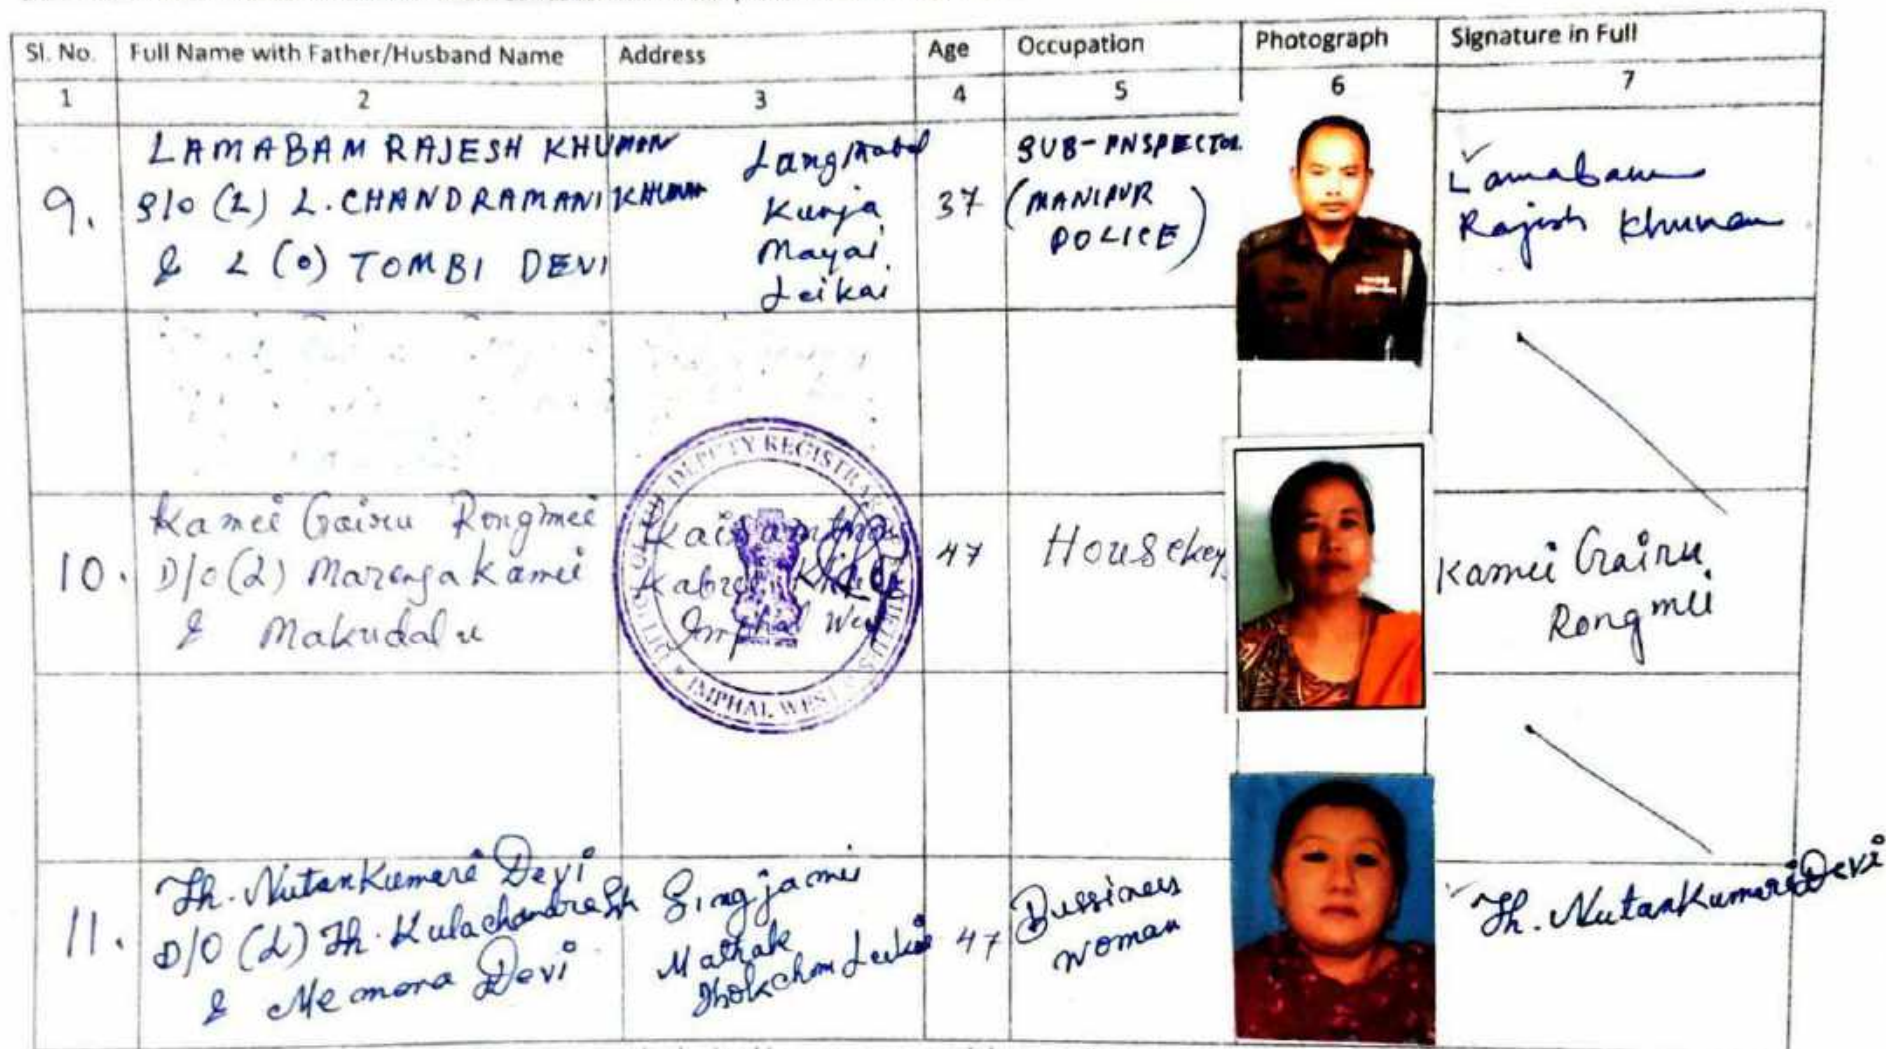 Sl. No. Full Name with Father/Husband Name Address Age Occupation Photograph Signature in Full
1 2 3 4 5 6 7
9.
LAMABAM RAJESH KHUMAN
S/O (L) L. CHANDRAMANI KHUMAN
& L (O) TOMBI DEVI
Langthabal
Kunja
Mayai
Leikai
37
SUB-INSPECTOR
(MANIPUR
POLICE)
Lamabam
Rajesh Khuman
10.
Kamei Gairu Rongmei
D/O (L) Marenga Kamei
& Makudalu
Imphal West
47
Housekey
Kamei Gairu
Rongmei
DEPUTY REGISTRAR
IMPHAL WEST
11.
Th. Nutankumari Devi
D/O (L) Th. Kulachandra Sh
& Memora Devi
Singjamei
Mathak
Thokchom Leikai
47
Bussiness
woman
Th. Nutankumari Devi